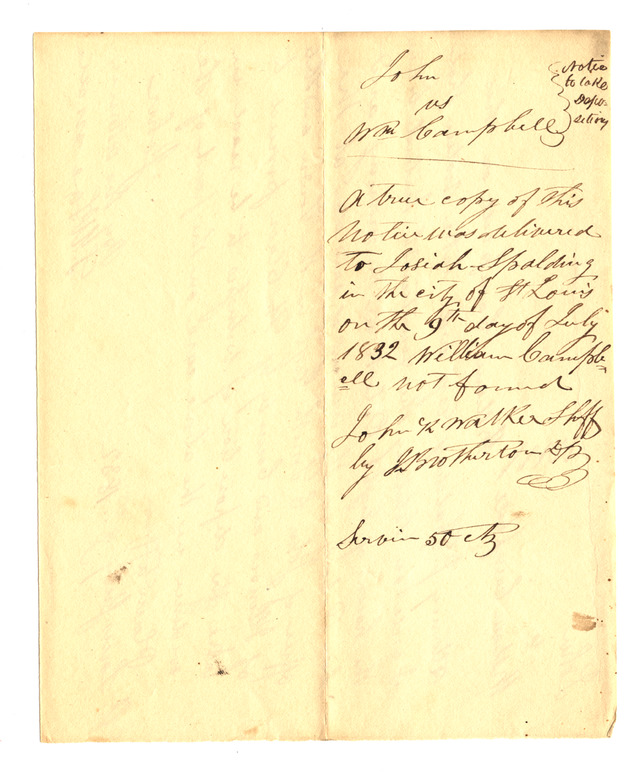 John
vs
Wm Campbell
Notice
to take
Depo
sition
A true copy of this
Notice was delivered
to Josiah Spalding
in the city of St Louis
on the 9th day of July
1832 William Campb=
=ell not found
John K Walker Shff
by J Brotherton Dp
Servin 50 cts